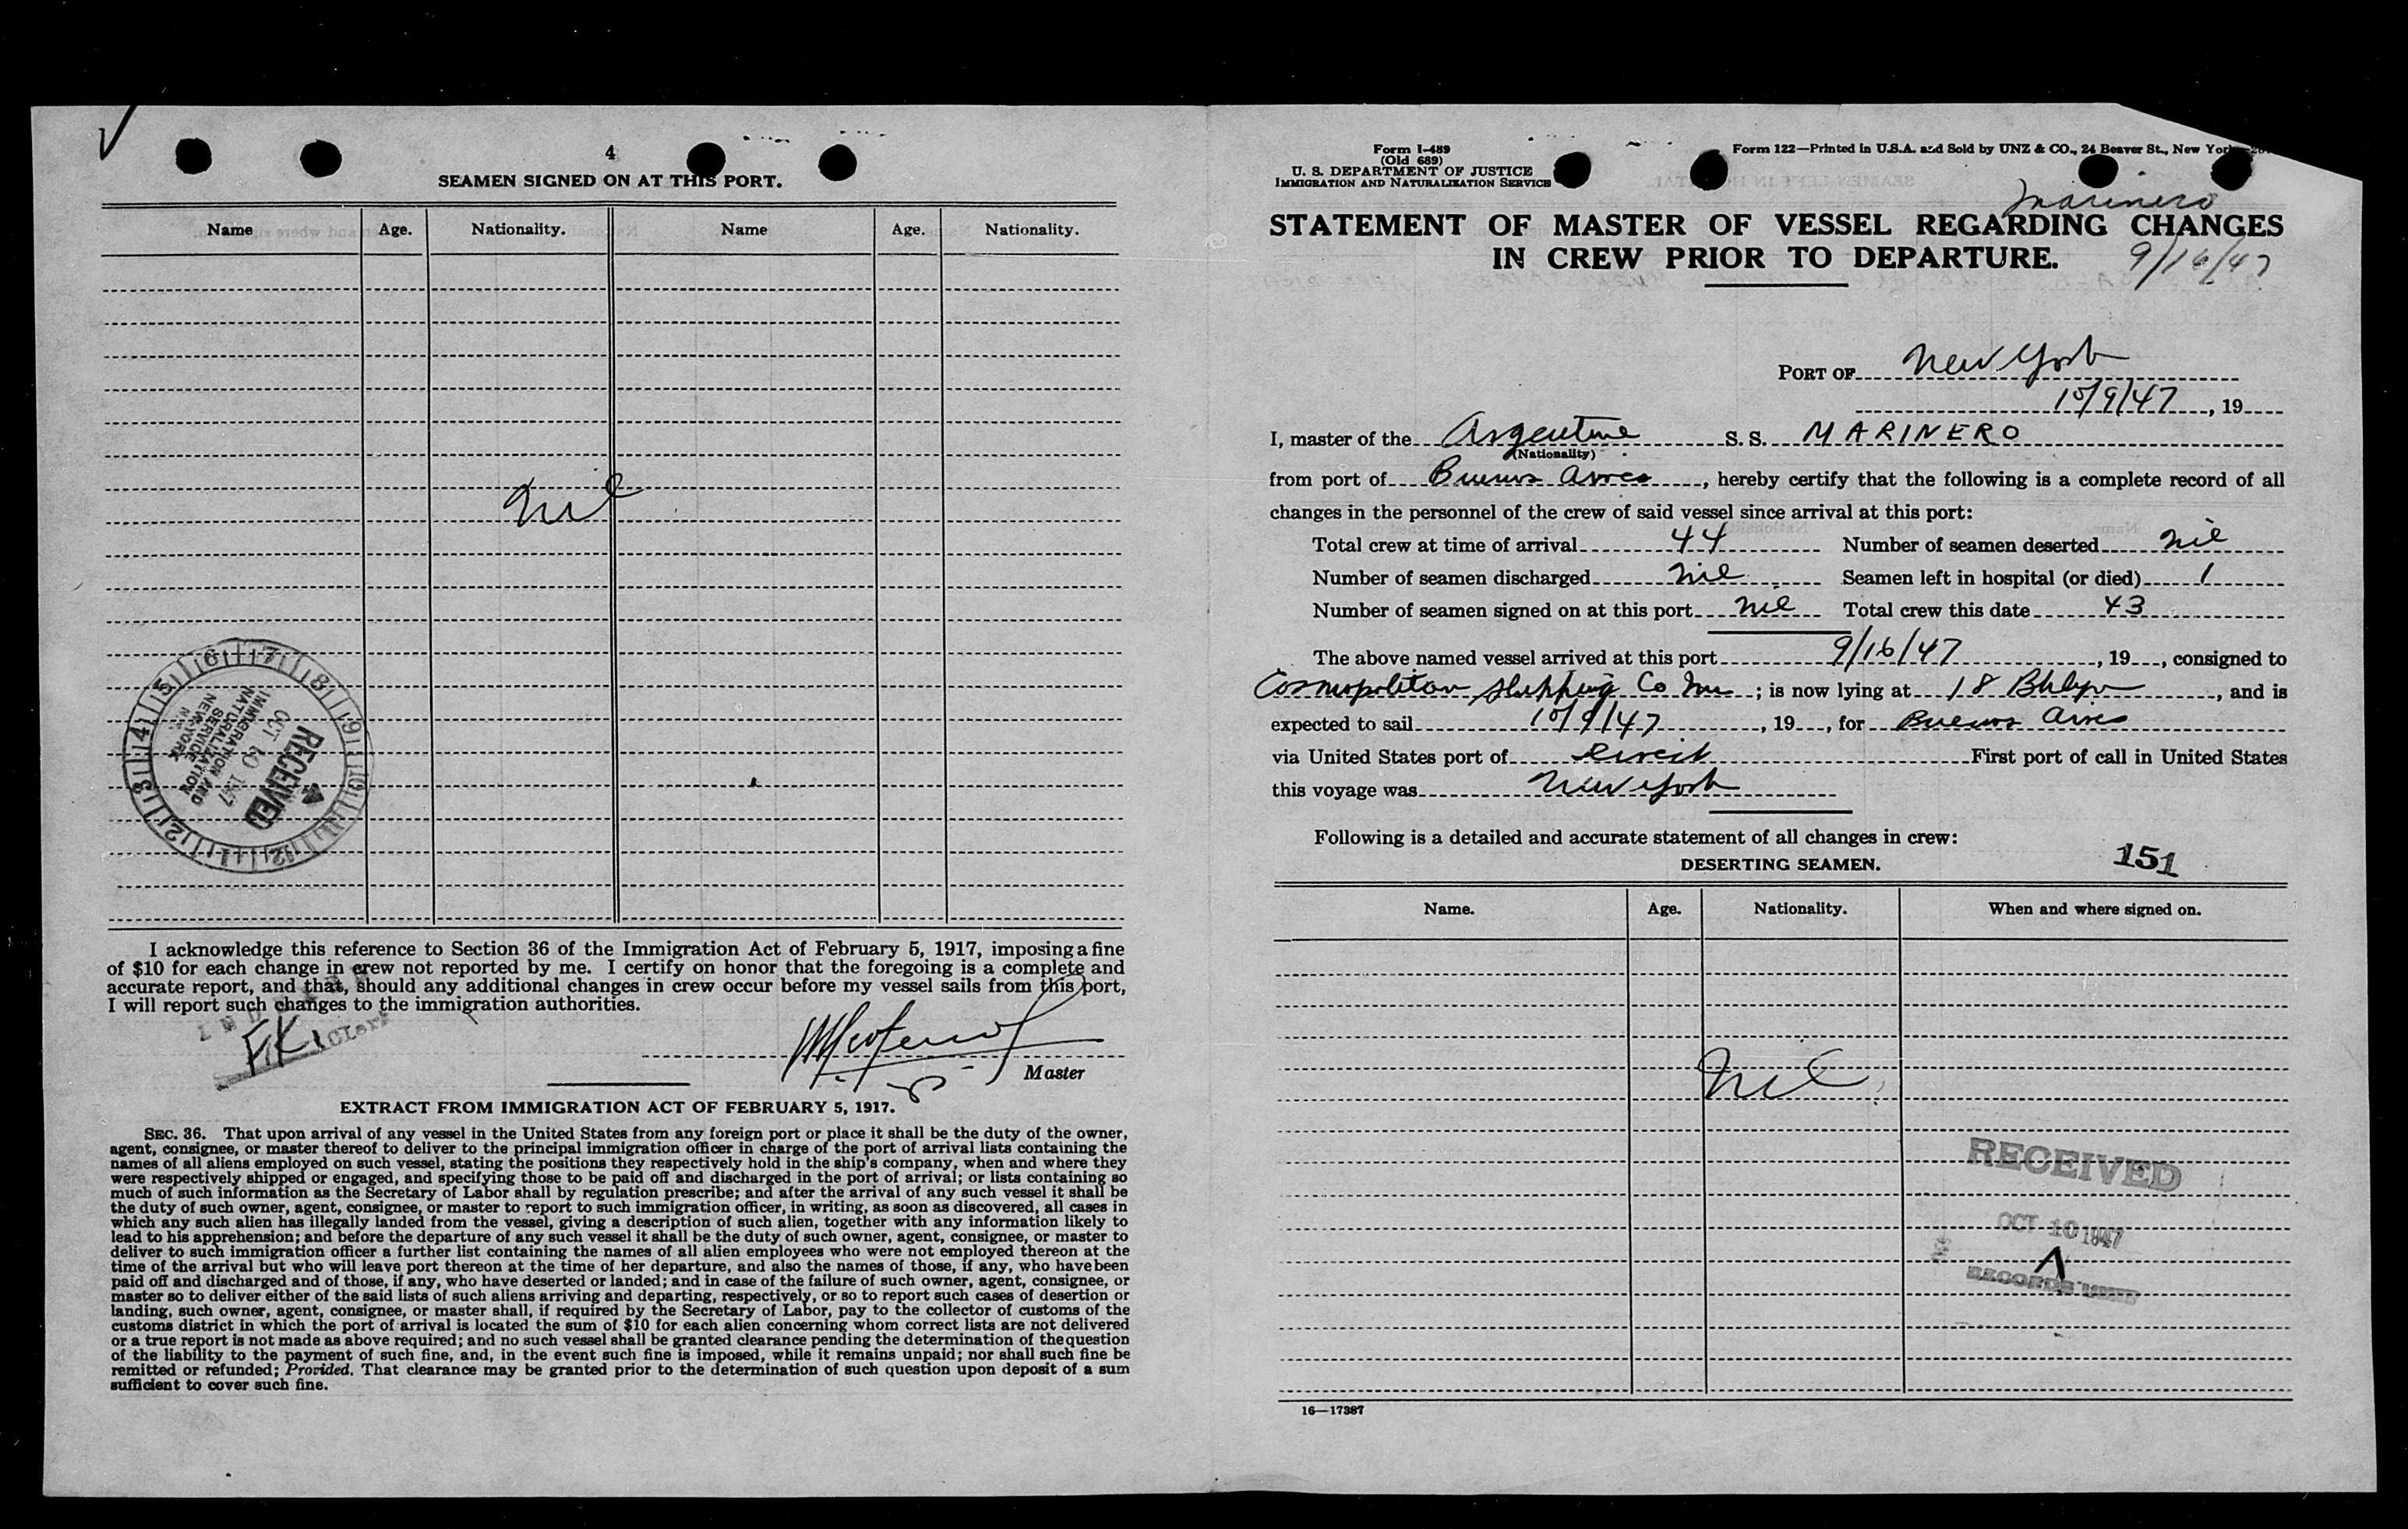 4
SEAMEN SIGNED ON AT THIS PORT.
Name Age. Nationality. Name Age. Nationality.
Nil
RECEIVED
OCT 10 1947
IMMIGRATION AND
NATURALIZATION
SERVICE
NEW YORK
N.Y.
I acknowledge this reference to Section 36 of the Immigration Act of February 5, 1917, imposing a fine
of $10 for each change in crew not reported by me. I certify on honor that the foregoing is a complete and
accurate report, and that, should any additional changes in crew occur before my vessel sails from this port,
I will report such changes to the immigration authorities.
FK Clerk
Master
EXTRACT FROM IMMIGRATION ACT OF FEBRUARY 5, 1917.
SEC. 36. That upon arrival of any vessel in the United States from any foreign port or place it shall be the duty of the owner,
agent, consignee, or master thereof to deliver to the principal immigration officer in charge of the port of arrival lists containing the
names of all aliens employed on such vessel, stating the positions they respectively hold in the ship's company, when and where they
were respectively shipped or engaged, and specifying those to be paid off and discharged in the port of arrival; or lists containing so
much of such information as the Secretary of Labor shall by regulation prescribe; and after the arrival of any such vessel it shall be
the duty of such owner, agent, consignee, or master to report to such immigration officer, in writing, as soon as discovered, all cases in
which any such alien has illegally landed from the vessel, giving a description of such alien, together with any information likely to
lead to his apprehension; and before the departure of any such vessel it shall be the duty of such owner, agent, consignee, or master to
deliver to such immigration officer a further list containing the names of all alien employees who were not employed thereon at the
time of the arrival but who will leave port thereon at the time of her departure, and also the names of those, if any, who have been
paid off and discharged and of those, if any, who have deserted or landed; and in case of the failure of such owner, agent, consignee, or
master so to deliver either of the said lists of such aliens arriving and departing, respectively, or so to report such cases of desertion or
landing, such owner, agent, consignee, or master shall, if required by the Secretary of Labor, pay to the collector of customs of the
customs district in which the port of arrival is located the sum of $10 for each alien concerning whom correct lists are not delivered
or a true report is not made as above required; and no such vessel shall be granted clearance pending the determination of the question
of the liability to the payment of such fine, and, in the event such fine is imposed, while it remains unpaid; nor shall such fine be
remitted or refunded; Provided, That clearance may be granted prior to the determination of such question upon deposit of a sum
sufficient to cover such fine.
Form I-489
(Old 689)
U. S. DEPARTMENT OF JUSTICE
IMMIGRATION AND NATURALIZATION SERVICE
Form 122—Printed in U.S.A. and Sold by UNZ & CO., 24 Beaver St., New York
Marinero
STATEMENT OF MASTER OF VESSEL REGARDING CHANGES
IN CREW PRIOR TO DEPARTURE.
9/16/47
PORT OF New York
10/9/47, 19
I, master of the Argentine S. S. MARINERO
(Nationality)
from port of Buenos Aires, hereby certify that the following is a complete record of all
changes in the personnel of the crew of said vessel since arrival at this port:
Total crew at time of arrival 44 Number of seamen deserted nil
Number of seamen discharged nil Seamen left in hospital (or died) 1
Number of seamen signed on at this port nil Total crew this date 43
The above named vessel arrived at this port 9/16/47, 19, consigned to
Cosmopolitan Shipping Co Inc; is now lying at 18 Bklyn, and is
expected to sail 10/9/47, 19, for Buenos Aires
via United States port of direct First port of call in United States
this voyage was New York
Following is a detailed and accurate statement of all changes in crew:
DESERTING SEAMEN.
151
Name. Age. Nationality. When and where signed on.
Nil
RECEIVED
OCT 10 1947
A
RECORDS UNIT
16—17387